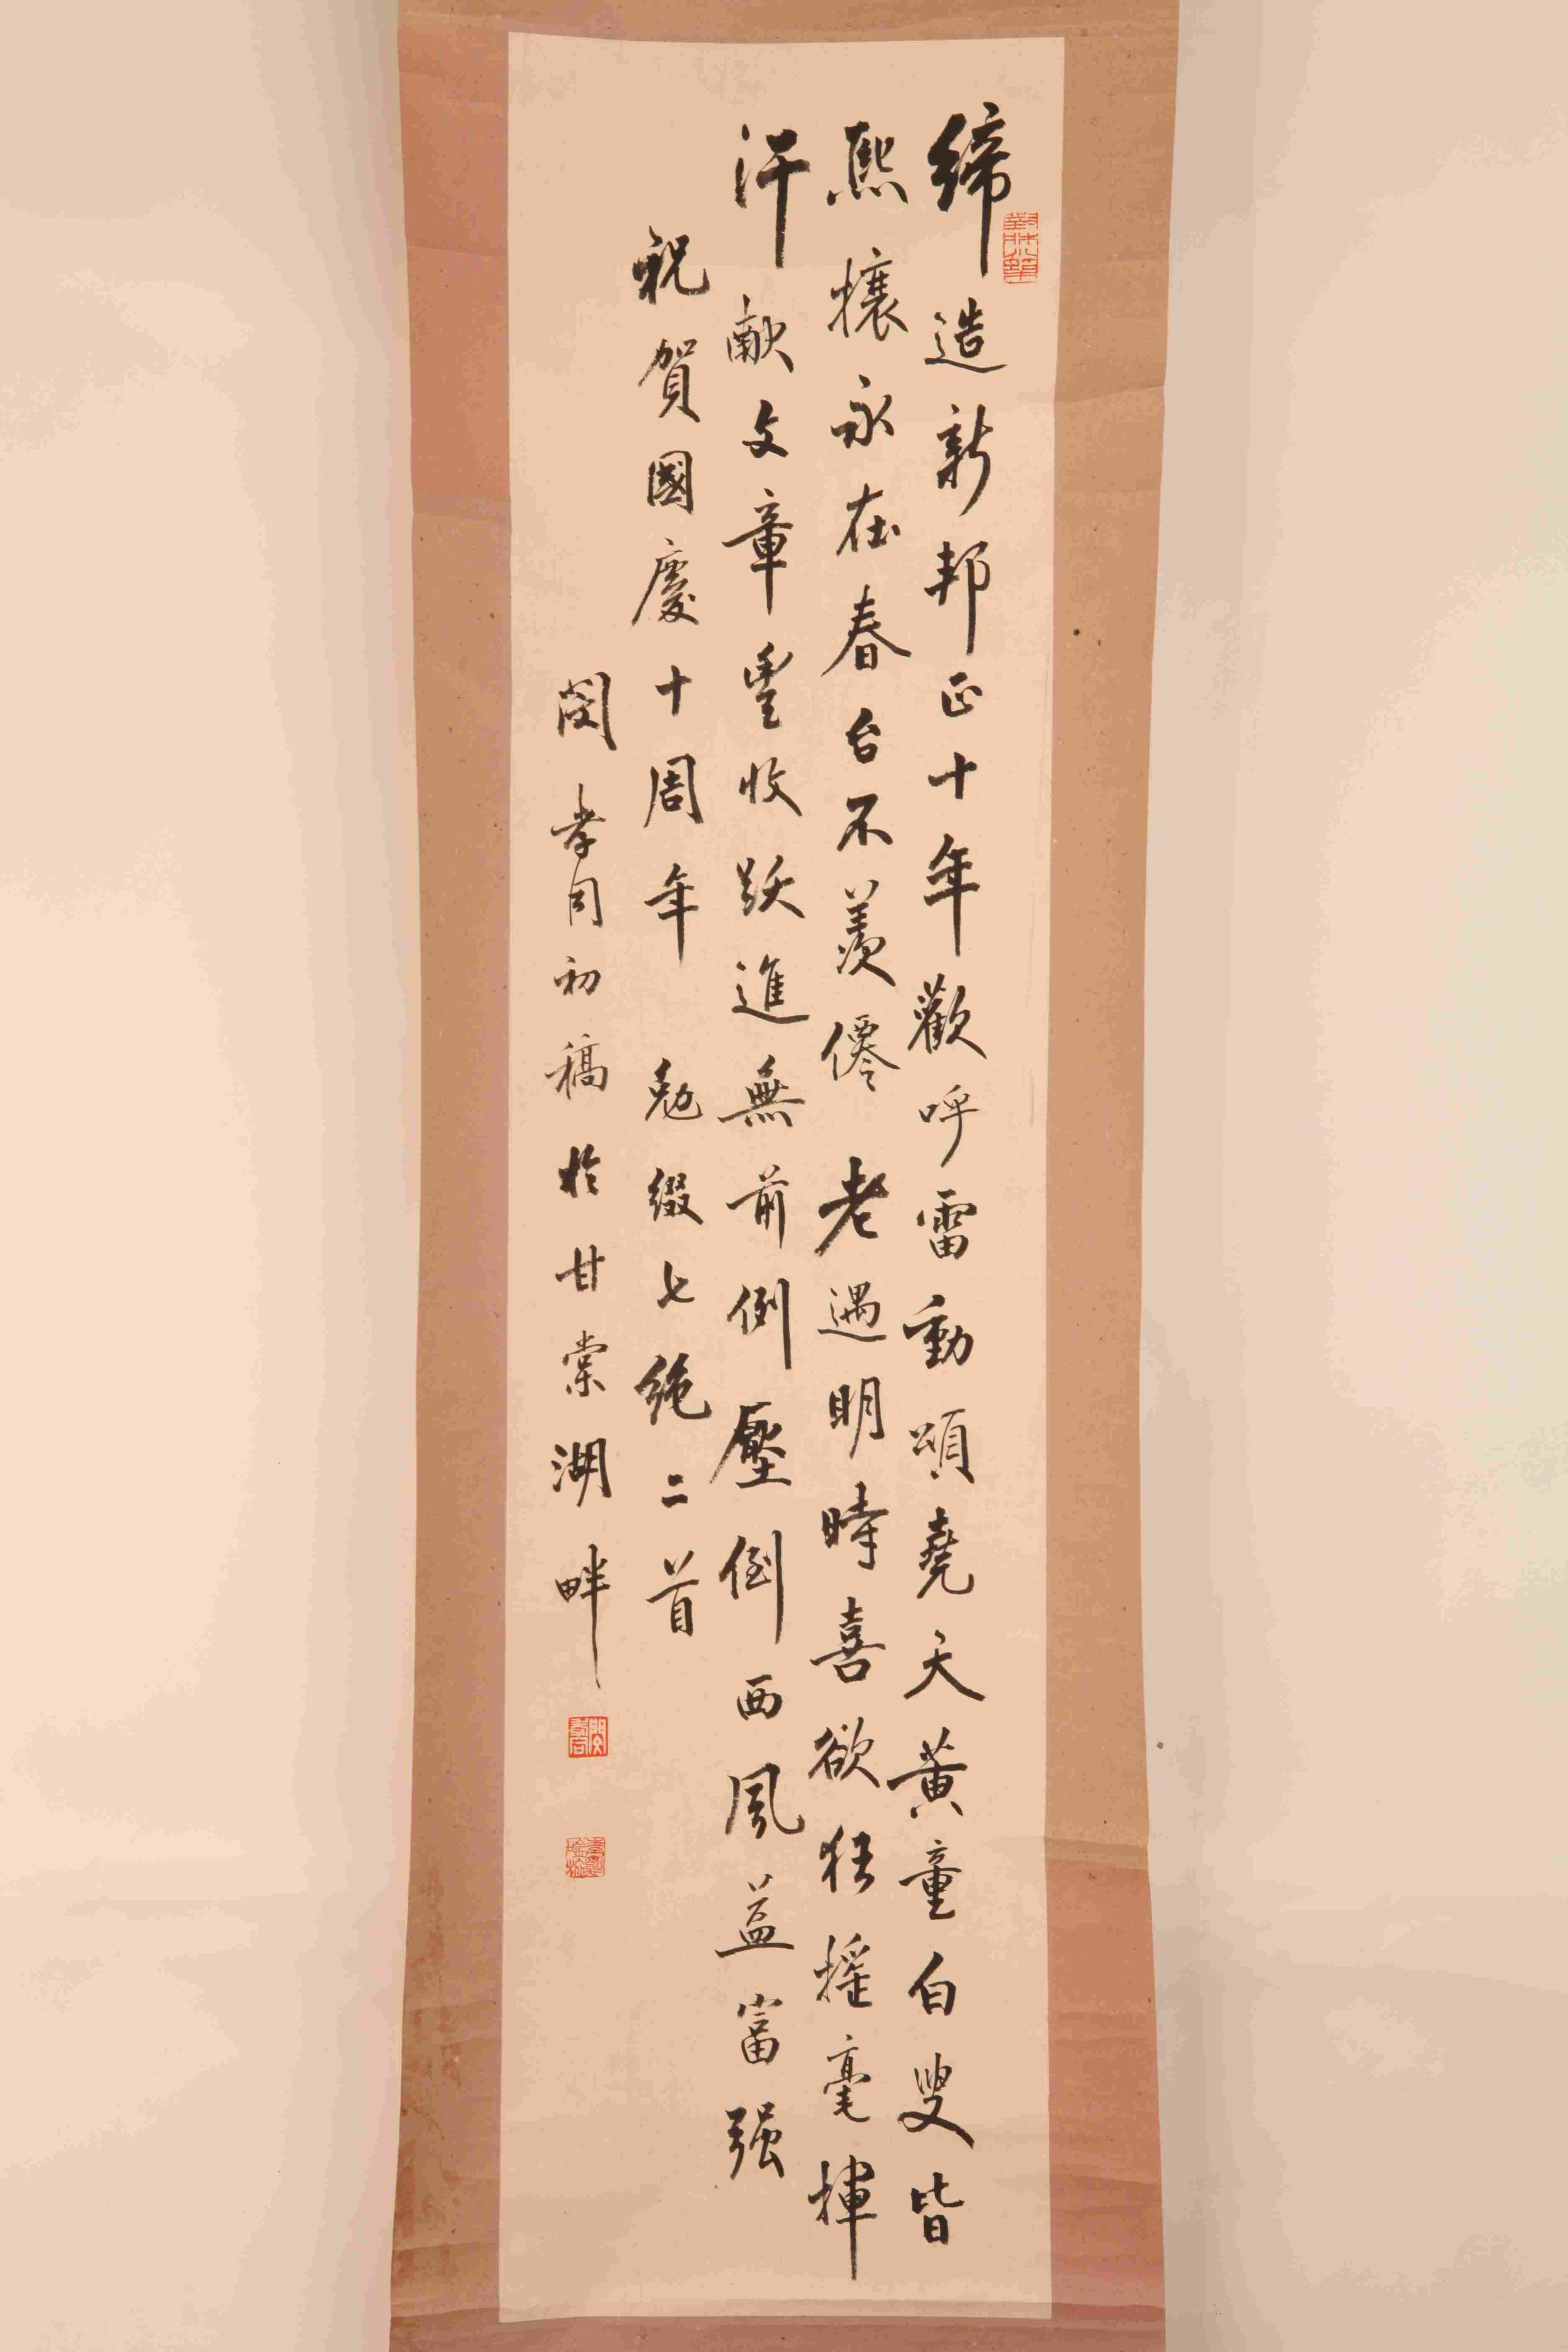 締造新邦正十年歡呼雷動頌堯天黃童白叟皆
熙攘永在春台不羨僊老遇明時喜欲狂搖毫揮
汗献文章豐收跃進無前例壓倒西風益富强
祝賀國慶十周年勉綴七绝二首
閔孝同初稿於甘棠湖畔